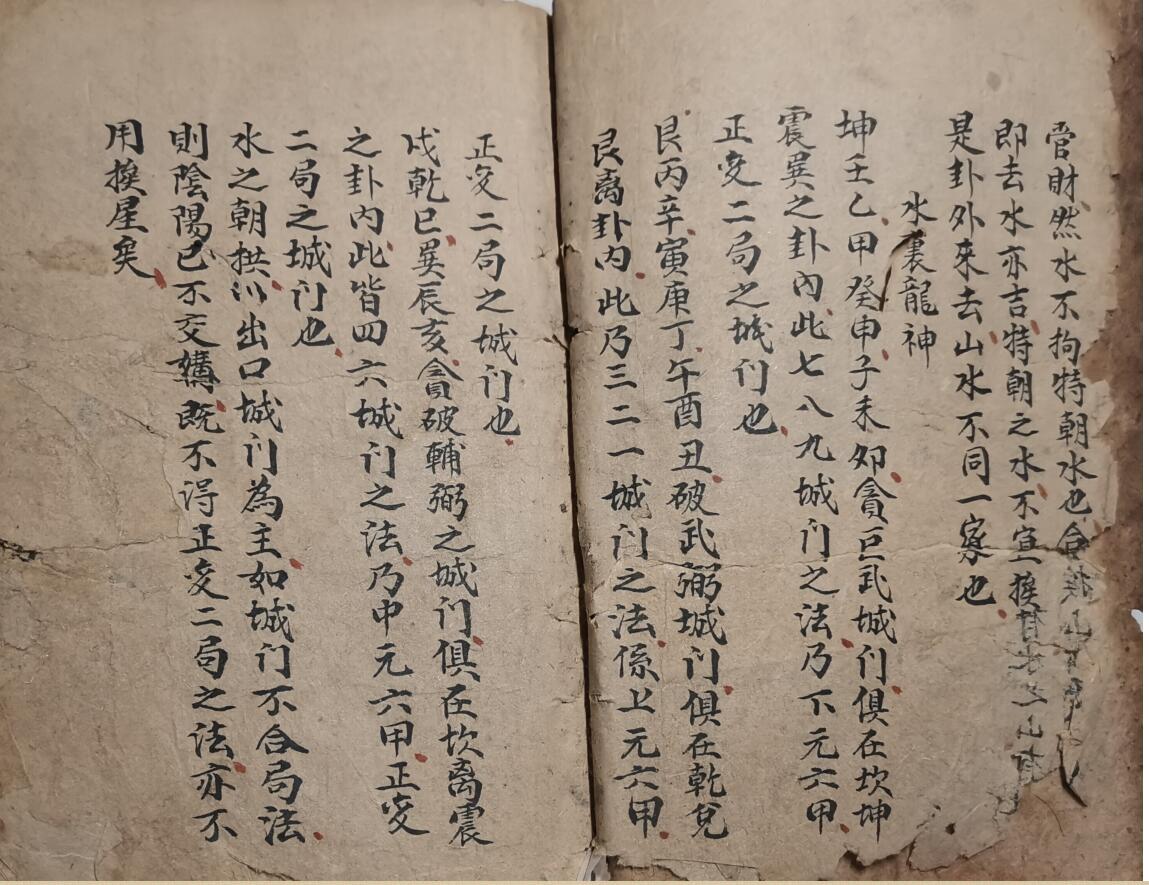 管財然水不拘特朝水也合
即去水亦吉特朝之水不宜換
是卦外來去山水不同一家也
水裏龍神
坤壬乙甲癸申子未卯貪巨武城门俱在坎坤
震巽之卦內此七八九城门之法乃下元六甲
正变二局之城门也
艮丙辛寅庚丁午酉丑破武弼城门俱在乾兌
艮离卦内此乃三二一城门之法係上元六甲
正变二局之城门也
戌乾巳巽辰亥貪破輔弼之城门俱在坎离震
之卦内此皆四六城门之法乃中元六甲正变
二局之城门也
水之朝拱以出口城门為主如城门不合局法
則陰陽已不交媾既不淂正变二局之法亦不
用換星矣